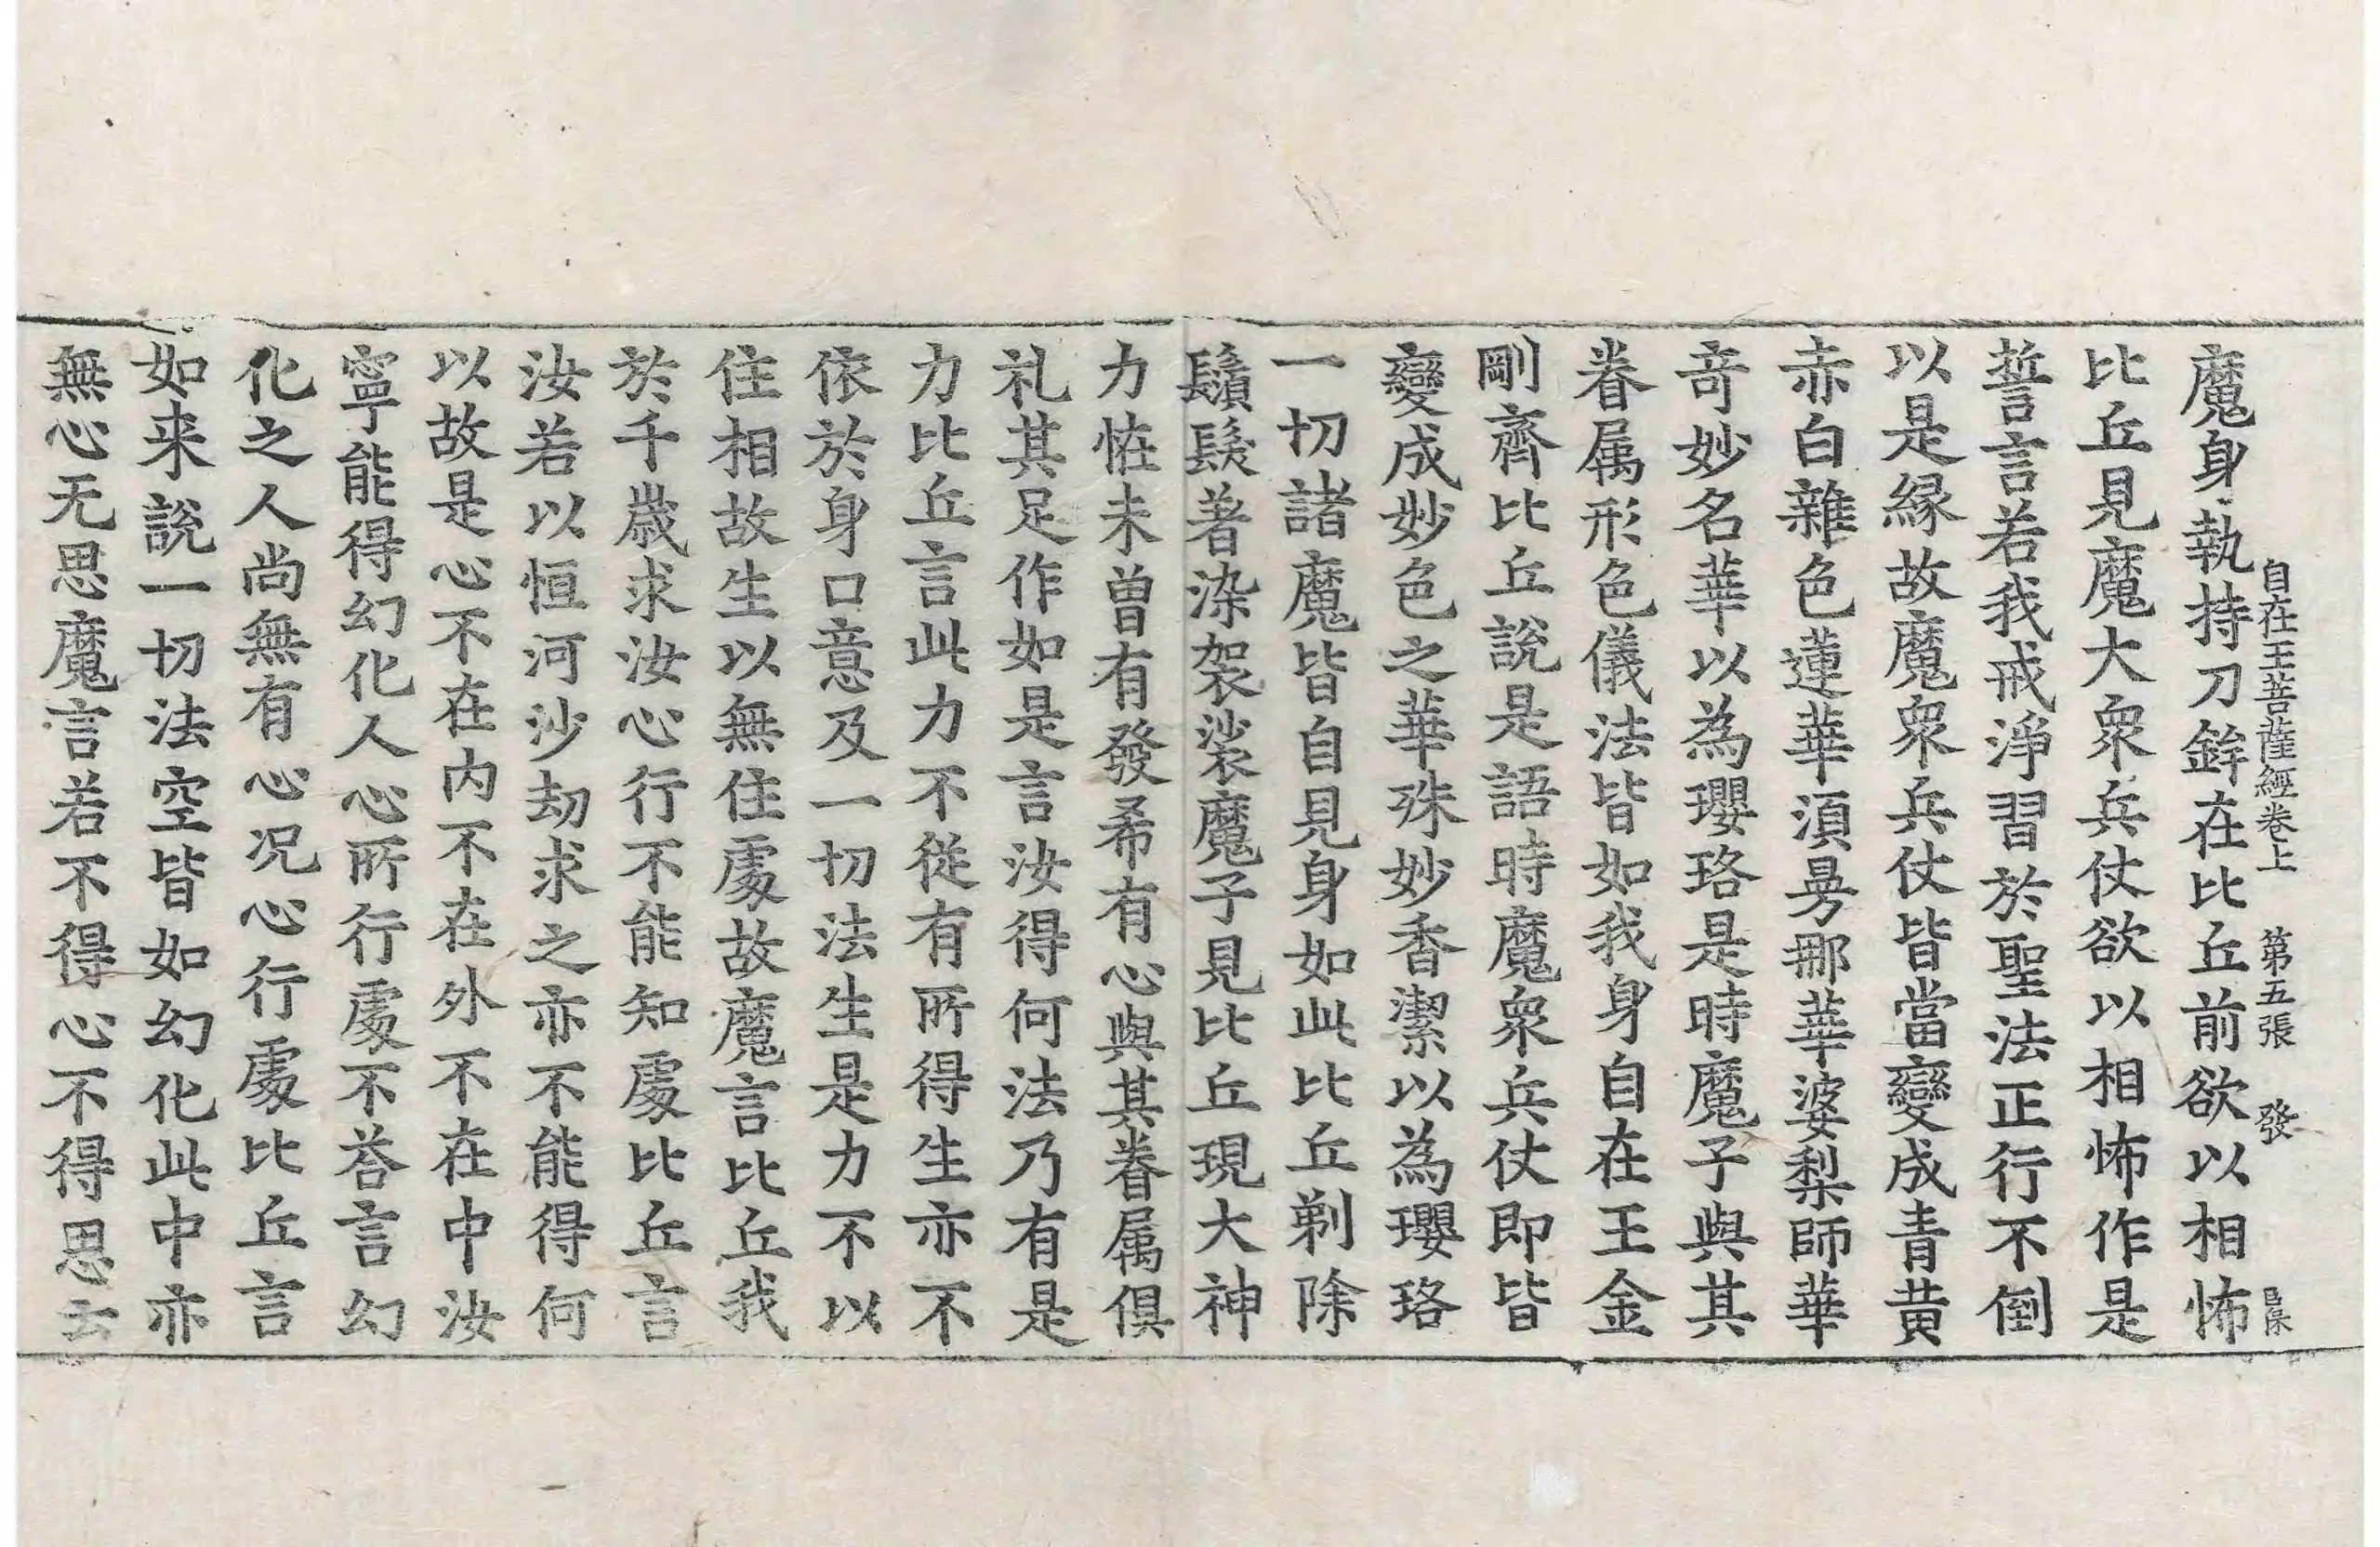 自在王菩薩經卷上　第五張　發
魔身執持刀鉾在比丘前欲以相怖
比丘見魔大衆兵仗欲以相怖作是
誓言若我戒淨習於聖法正行不倒
以是縁故魔衆兵仗皆當變成青黄
赤白雜色蓮華須曼那華婆梨師華
奇妙名華以為瓔珞是時魔子與其
眷属形色儀法皆如我身自在王金
剛齊比丘說是語時魔衆兵仗即皆
變成妙色之華殊妙香潔以為瓔珞
一切諸魔皆自見身如此比丘剃除
鬚髮著染袈裟魔子見比丘現大神
力恠未曾有發希有心與其眷属俱
礼其足作如是言汝得何法乃有是
力比丘言此力不從有所得生亦不
依於身口意及一切法生是力不以
住相故生以無住處故魔言比丘我
於千歲求汝心行不能知處比丘言
汝若以恒河沙劫求之亦不能得何
以故是心不在内不在外不在中汝
寧能得幻化人心所行處不荅言幻
化之人尚無有心况心行處比丘言
如来說一切法空皆如幻化此中亦
無心无思魔言若不得心不得思云